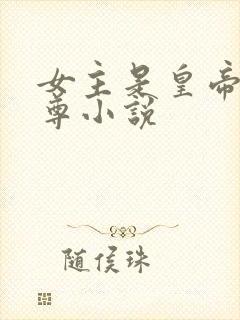 女主是皇帝
尊小说
随侯珠